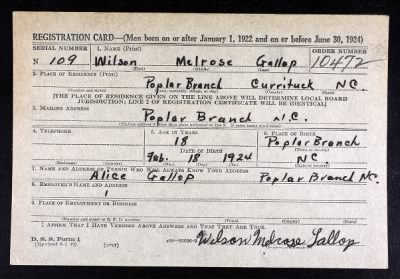 REGISTRATION CARD—(Men born on or after January 1, 1922 and on or before June 30, 1924)
SERIAL NUMBER 1. NAME (Print) ORDER NUMBER
N 109 Wilson Melrose Gallop 10472
(First) (Middle) (Last)
2. PLACE OF RESIDENCE (Print)
Poplar Branch Currituck N.C.
(Number and street) (Town, township, village, or city) (County) (State)
[THE PLACE OF RESIDENCE GIVEN ON THE LINE ABOVE WILL DETERMINE LOCAL BOARD
JURISDICTION; LINE 2 OF REGISTRATION CERTIFICATE WILL BE IDENTICAL]
3. MAILING ADDRESS
Poplar Branch N.C.
4. TELEPHONE 5. AGE IN YEARS 6. PLACE OF BIRTH
18 Poplar Branch
DATE OF BIRTH
Feb. 18 1924 N.C.
(Exchange) (Number) (Mo.) (Day) (Yr.) (State or country)
7. NAME AND ADDRESS OF PERSON WHO WILL ALWAYS KNOW YOUR ADDRESS
Alice Gallop Poplar Branch N.C.
8. EMPLOYER'S NAME AND ADDRESS
9. PLACE OF EMPLOYMENT OR BUSINESS
(Number and street or R. F. D. number) (Town) (County) (State)
I AFFIRM THAT I HAVE VERIFIED ABOVE ANSWERS AND THAT THEY ARE TRUE.
D. S. S. Form 1 (over) Wilson Melrose Gallop